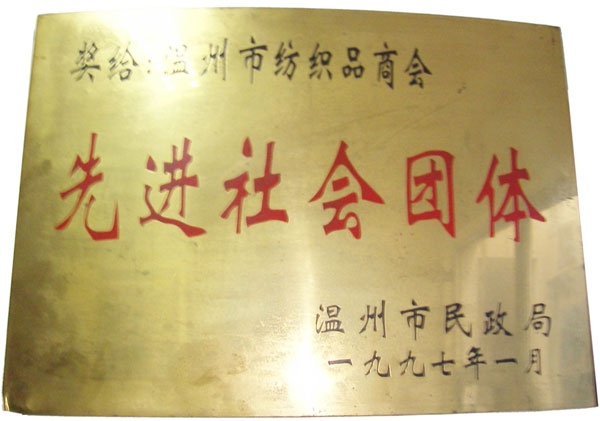 奖给:温州市纺织品商会
先进社会团体
温州市民政局
一九九七年一月